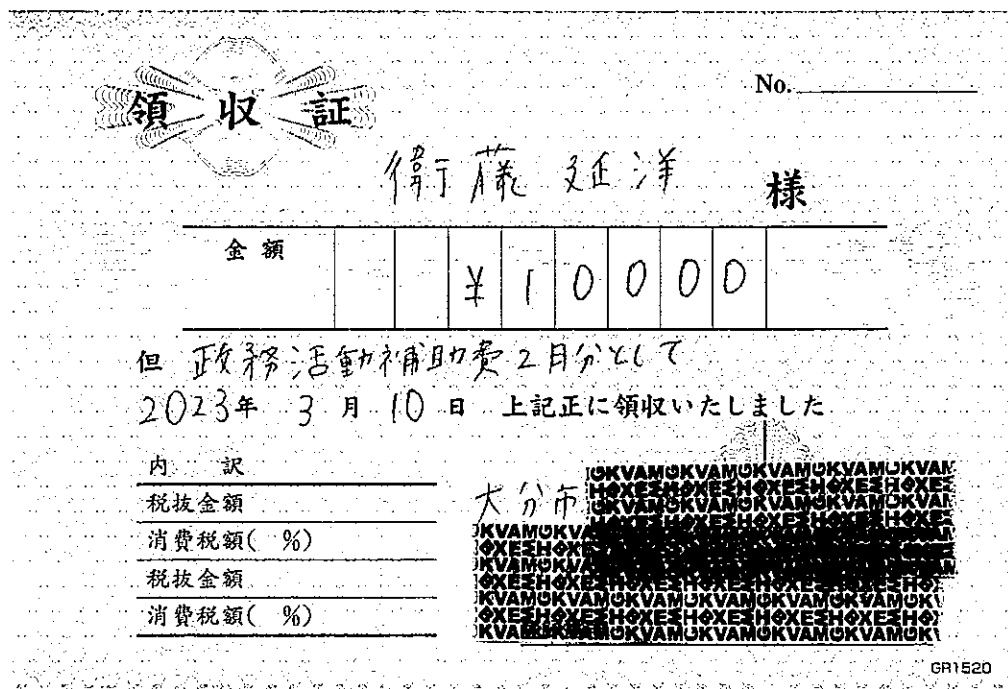 領収証
No.
衛藤延洋 様
金額 ¥10000
但 政務活動補助費2月分として
2023年 3月10日 上記正に領収いたしました
内訳
税抜金額
消費税額( %)
税抜金額
消費税額( %)
大分市
GR1520